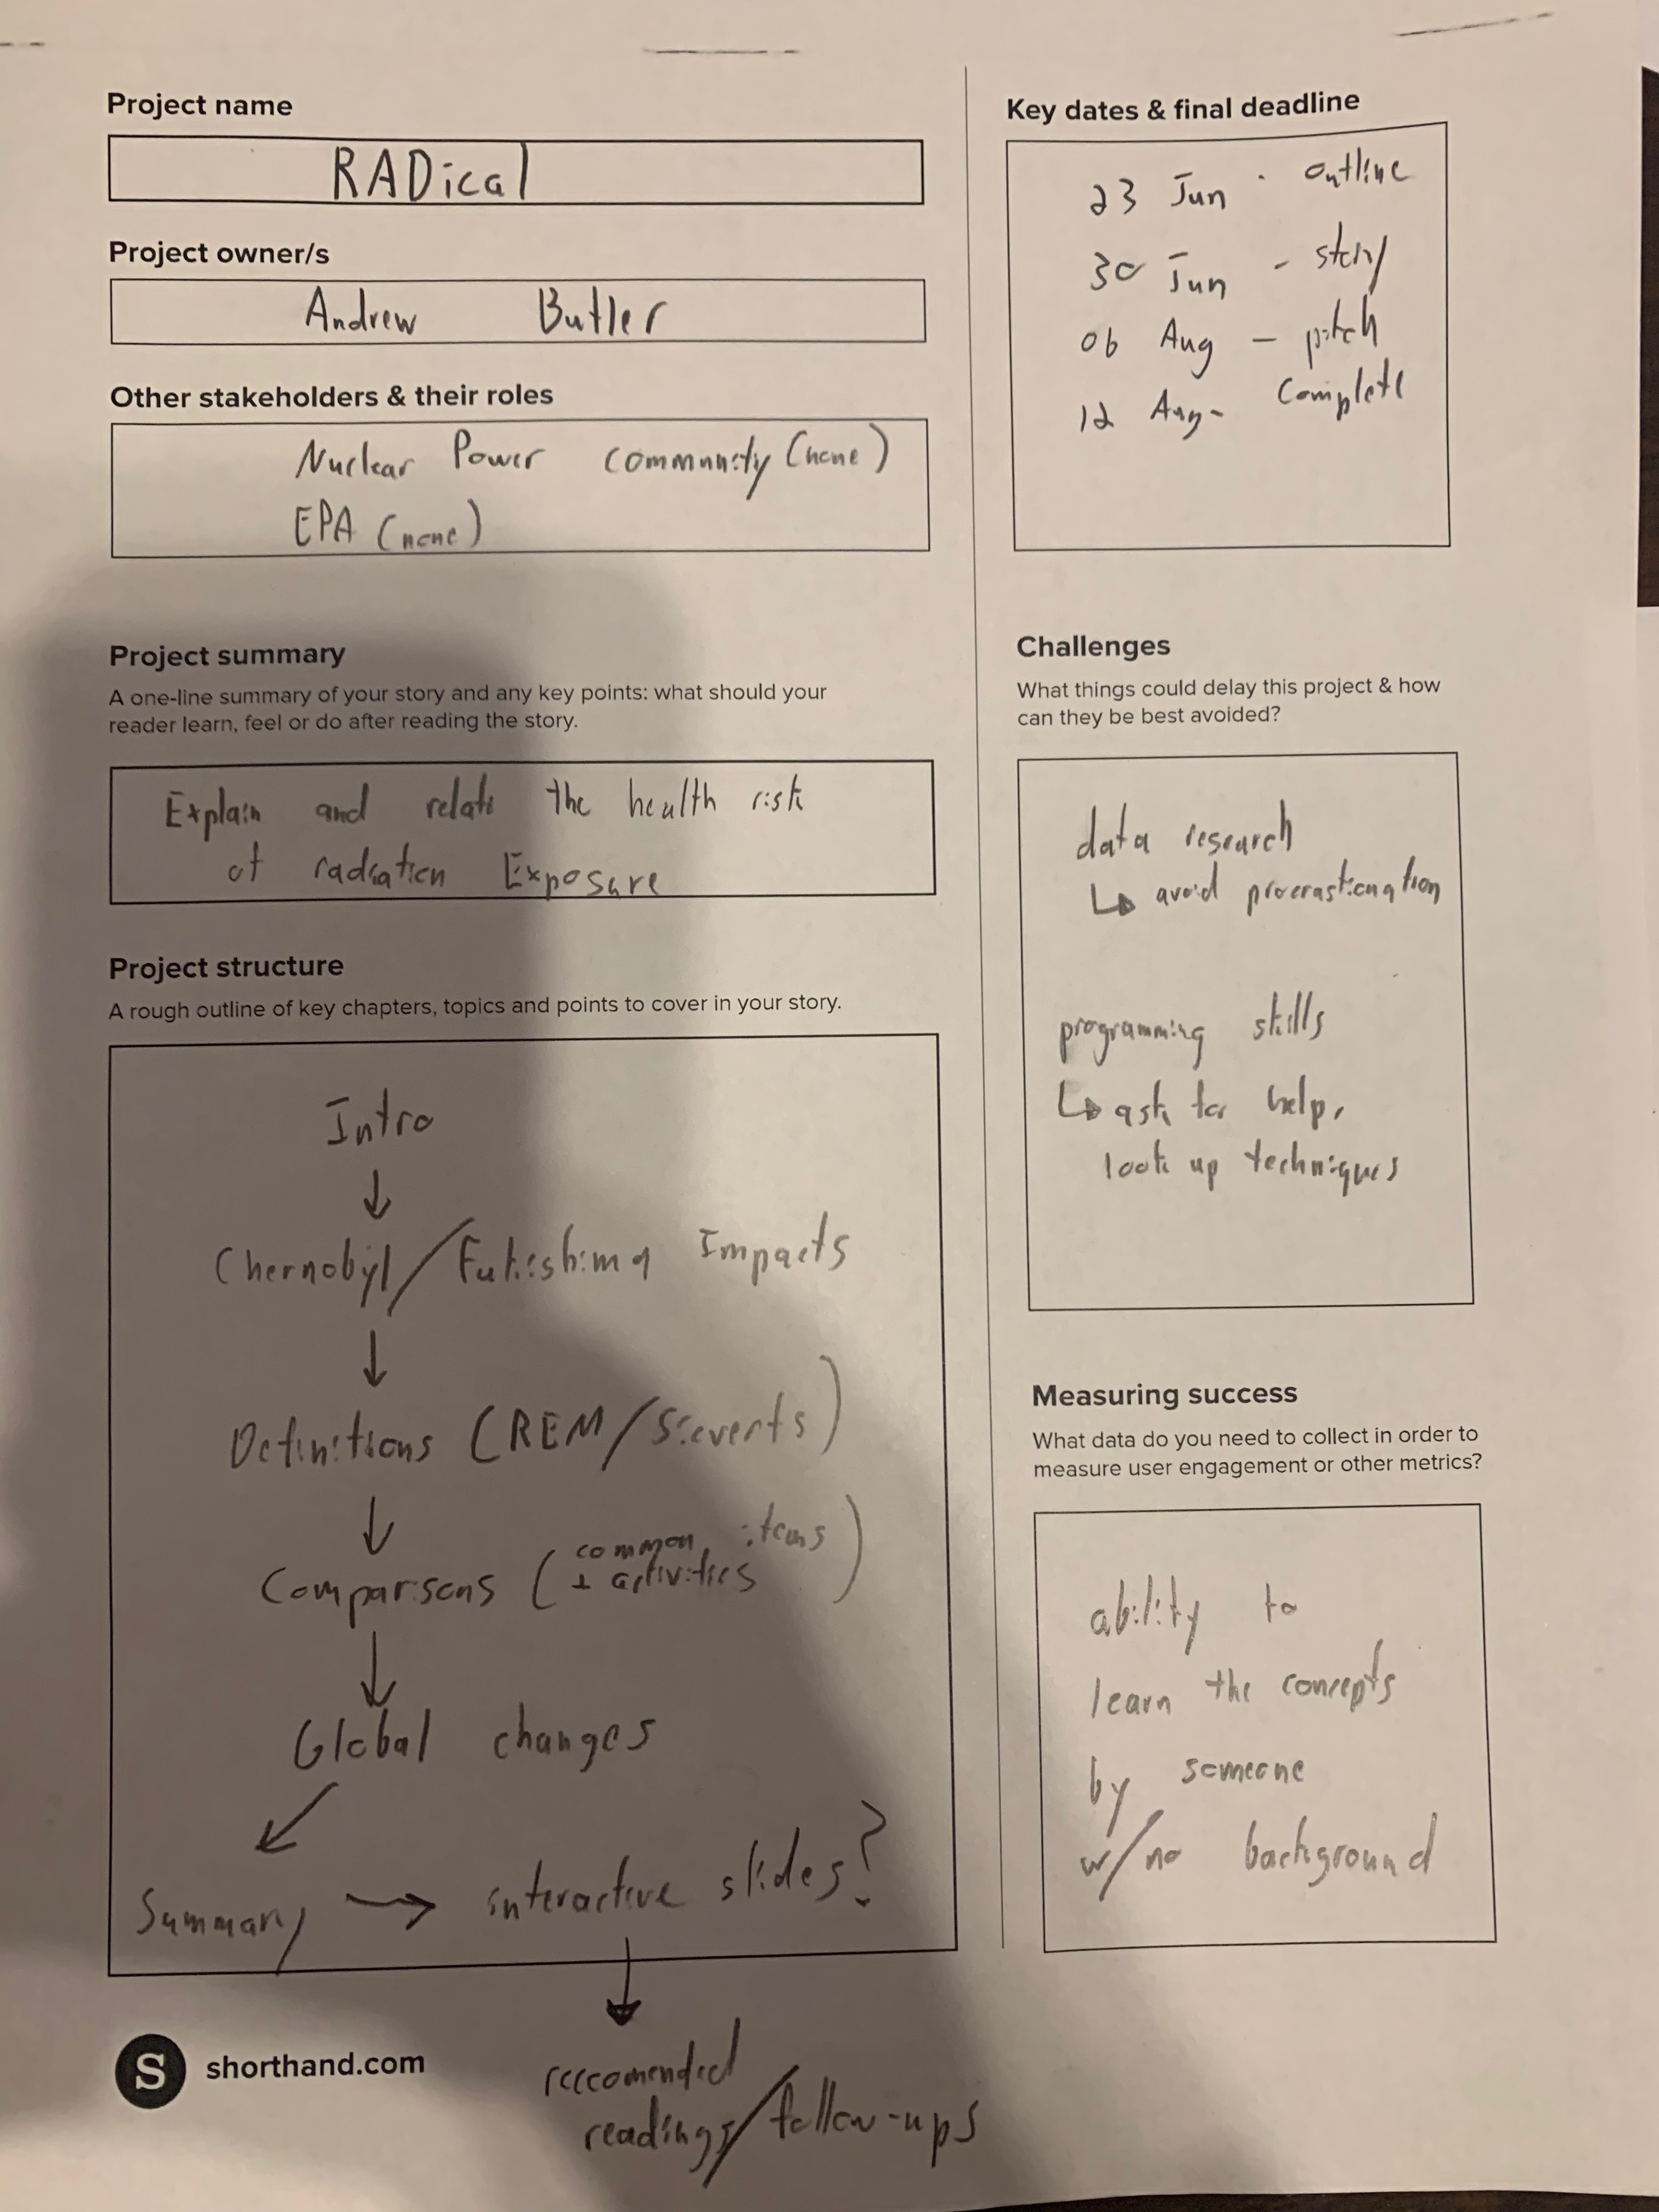 Project name
RADical
Project owner/s
Andrew Butler
Other stakeholders & their roles
Nuclear Power community (none)
EPA (none)
Project summary
A one-line summary of your story and any key points: what should your
reader learn, feel or do after reading the story.
Explain and relate the health risk
of radiation Exposure
Project structure
A rough outline of key chapters, topics and points to cover in your story.
Intro
↓
Chernobyl/Fukishima Impacts
↓
Definitions (REM/Sieverts)
↓
Comparisons (common items
+ activities)
↓
Global changes
↙
Summary → interactive slides?
↓
reccomended
readings/follow-ups
S shorthand.com
Key dates & final deadline
23 Jun - outline
30 Jun - story
06 Aug - pitch
12 Aug - Complete
Challenges
What things could delay this project & how
can they be best avoided?
data research
↳ avoid procrastionation
programming skills
↳ ask for help,
look up techniques
Measuring success
What data do you need to collect in order to
measure user engagement or other metrics?
ability to
learn the concepts
by someone
w/no background